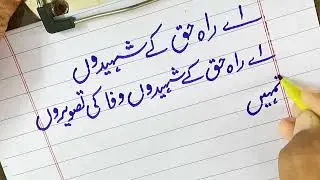 اے راہ حق کے شہیدوں
اے راہ حق کے شہیدوں وفا کی تصویروں
تمہیں